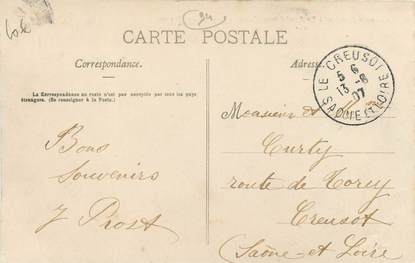 94
CARTE POSTALE
Correspondance.
Adresse
La Correspondance au recto n'est pas acceptée par tous les pays
étrangers. (Se renseigner à la Poste).
LE CREUSOT
5 6
13 - 8
07
SAONE ET LOIRE
Monsieur et
Curty
route de Torcy
Creusot
(Saône-et Loire)
Bons
Souvenirs
J Prost